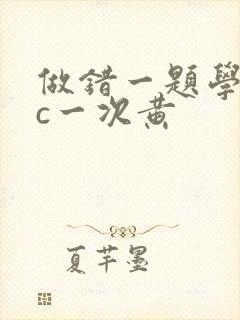 做錯一題學
c一次黃
夏芊墨